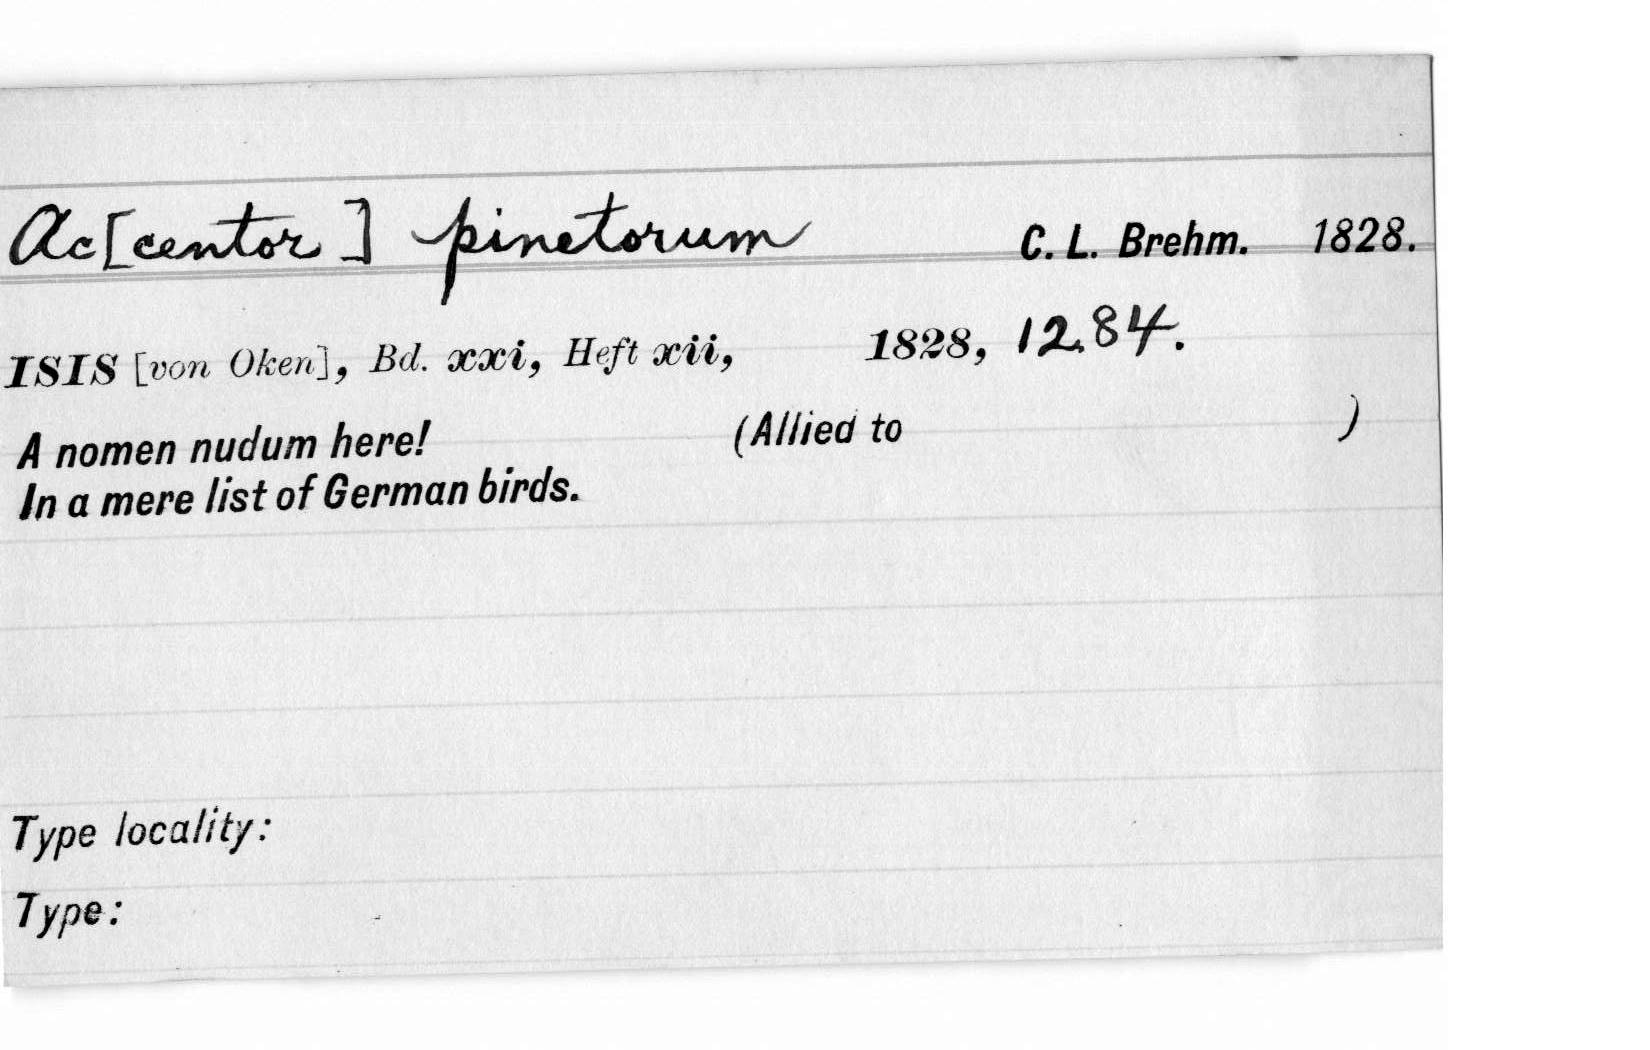 Ac[centor] pinetorum C. L. Brehm. 1828.
ISIS [von Oken], Bd. xxi, Heft xii, 1828, 1284.
A nomen nudum here! (Allied to )
In a mere list of German birds.
Type locality:
Type: